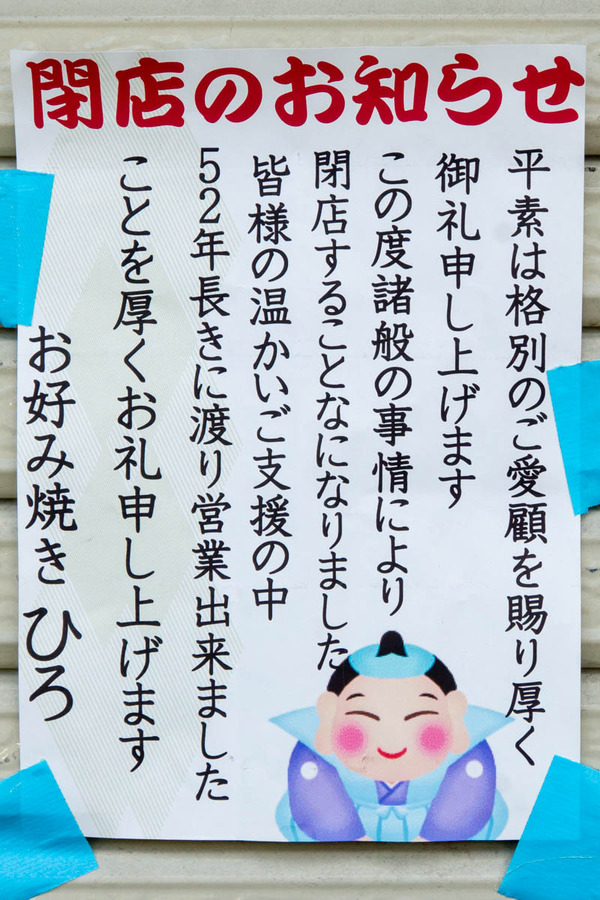 閉店のお知らせ
平素は格別のご愛顧を賜り厚く
御礼申し上げます
この度諸般の事情により
閉店することなになりました
皆様の温かいご支援の中
52年長きに渡り営業出来ました
ことを厚くお礼申し上げます
お好み焼き ひろ